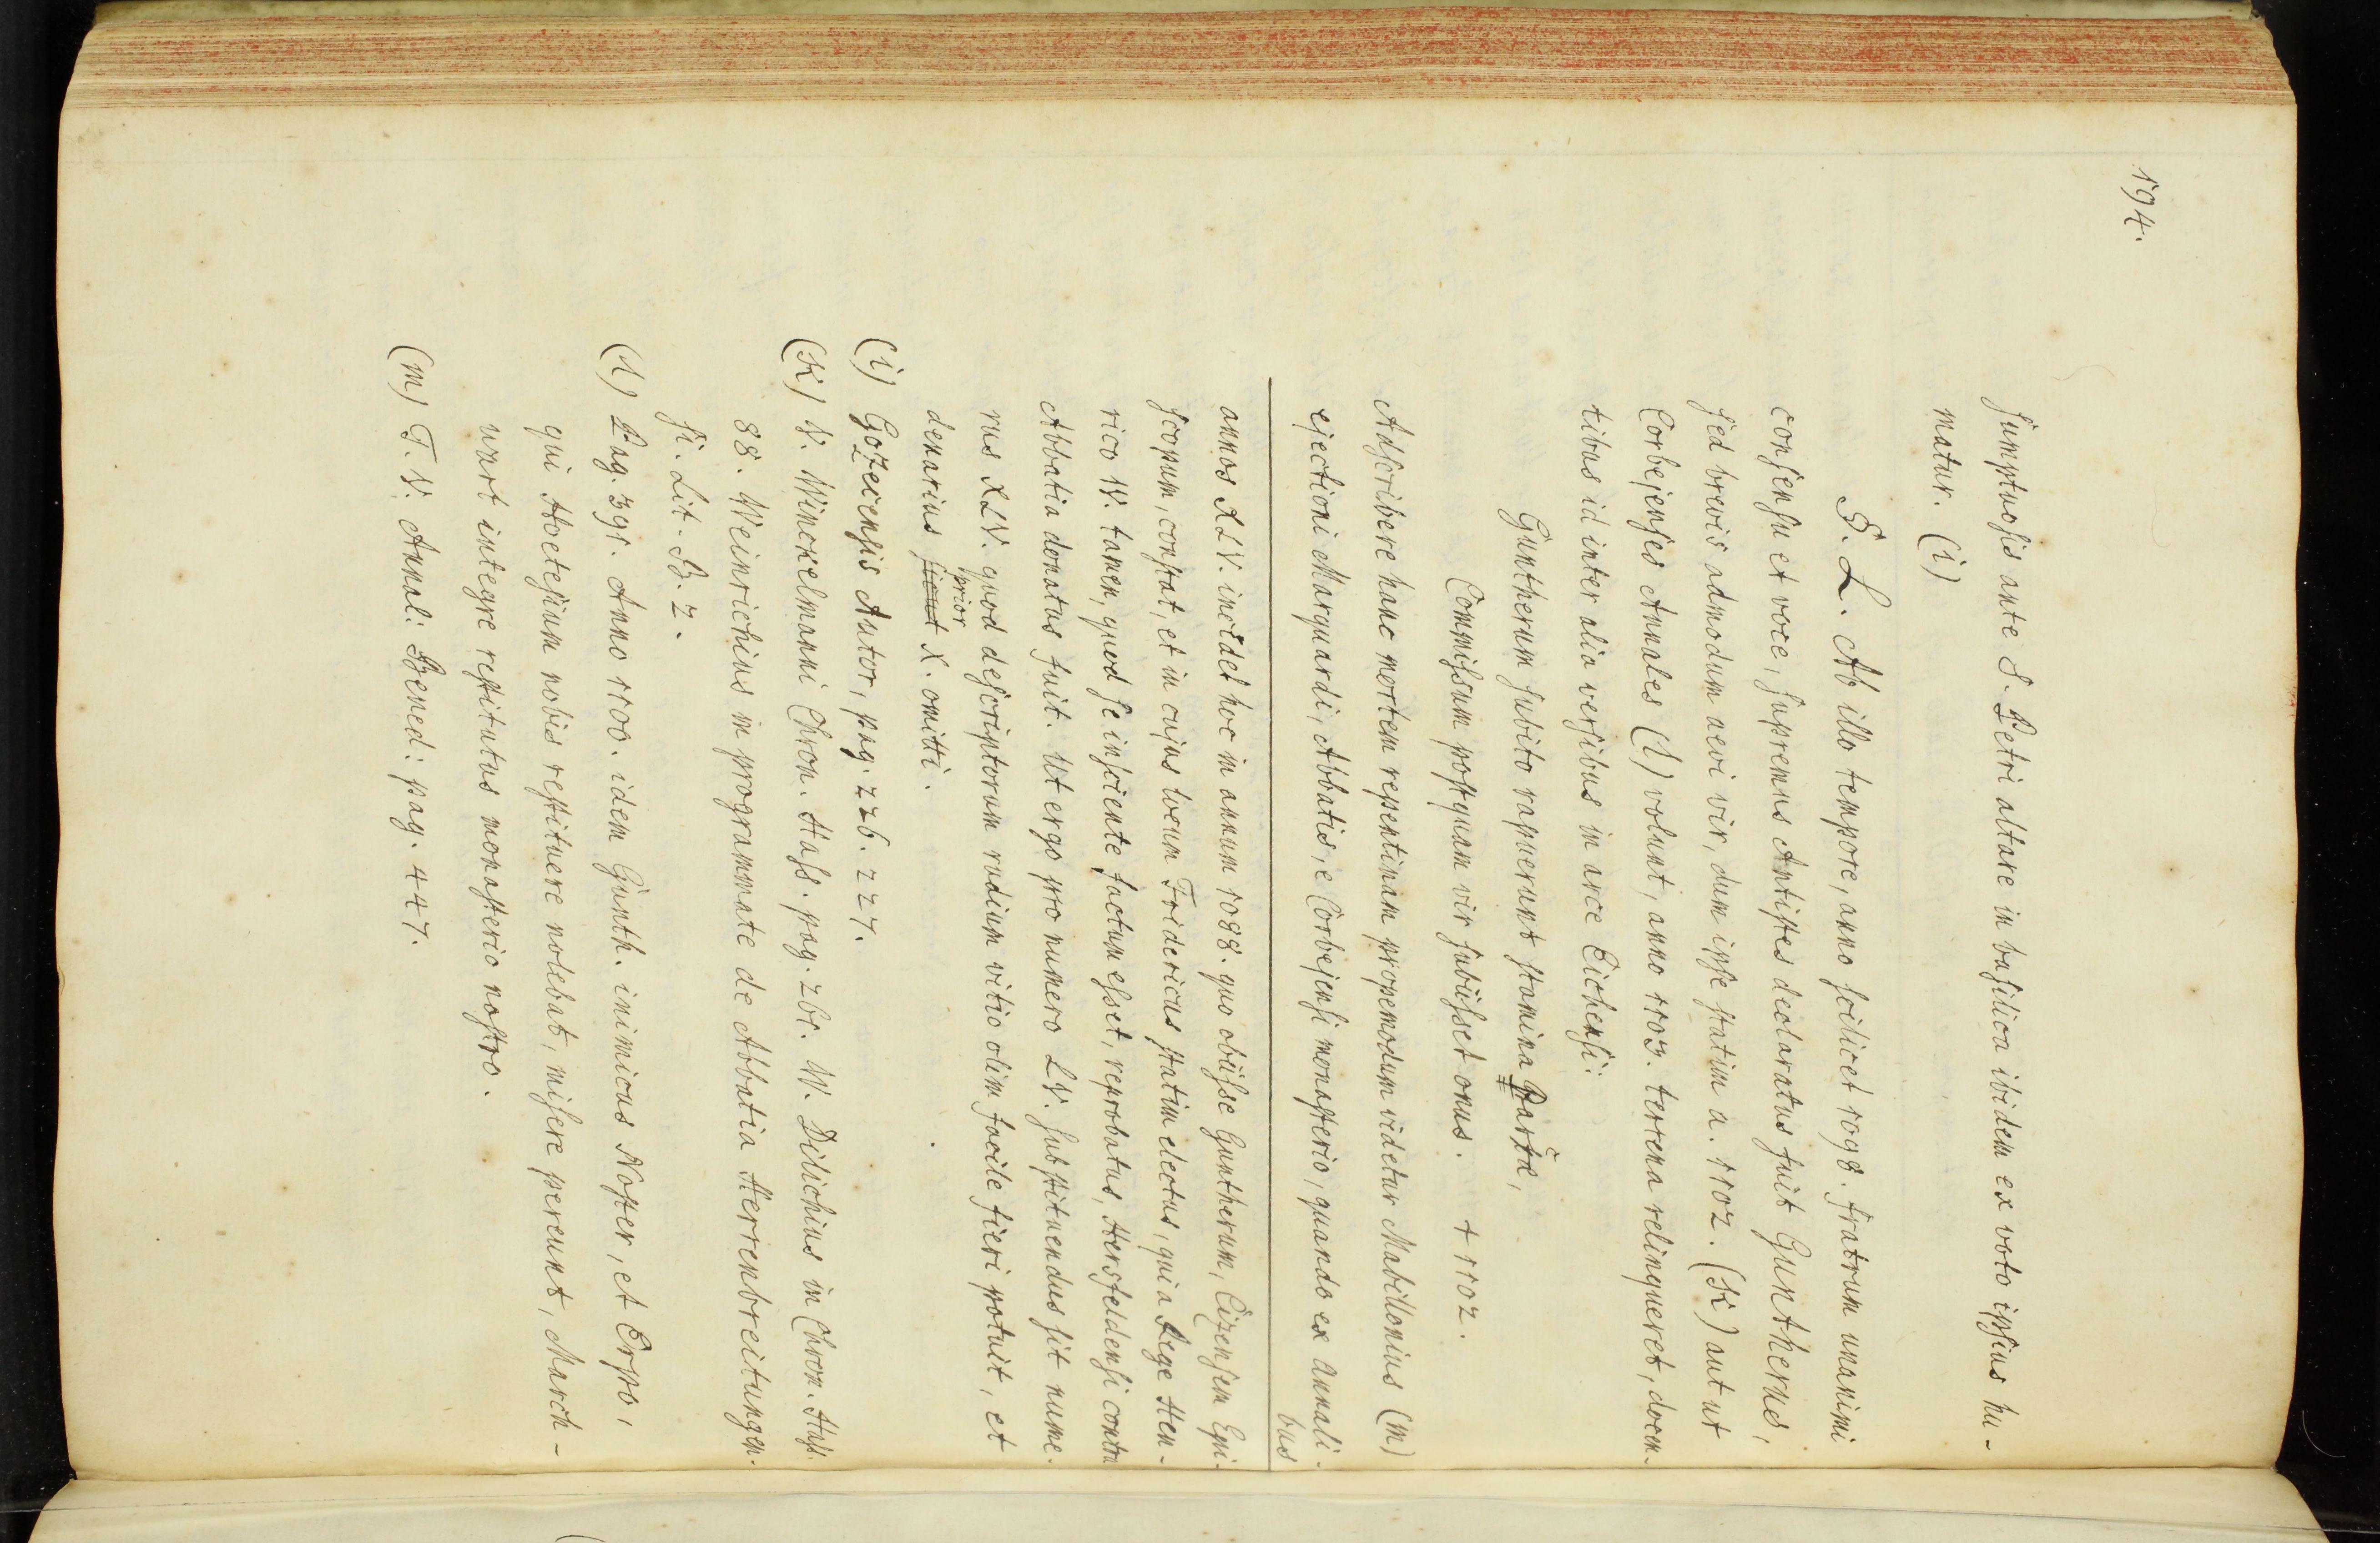 194.
sumptuosis ante S. Petri altare in basilica ibidem ex voto ipsius hu-
matur. (i)
§. L. Ab illo tempore, anno scilicet 1098. fratrum unanimi
consensu et voce, supremus Antistes declaratus fuit Guntherus,
sed brevis admodum aevi vir, dum ipse statim a. 1102. (k) aut ut
Corbejenses Annales (l) volunt, anno 1103. terrena relinqueret, docen-
tibus id inter alia versibus in arce Eichensi:
Guntherum subito rapuerunt stamina Parcæ,
Commissum postquam vir subiisset onus. + 1102.
Adscribere hanc mortem repentinam propemodum videtur Mabillonius (m)
ejectioni Marquardi, Abbatis, e Corbejensi monasterio, quando ex annali-
bus
annos XLV. incidet hoc in annum 1088. quo obiisse Guntherum, Cizensem Epi-
scopum, constat, et in cujus locum Fridericus statim electus, qui a Rege Hen-
rico IV. tamen, quod se insciente factum esset, reprobatus, Hersfeldensi contra
Abbatia donatus fuit. Ut ergo pro numero LV. substituendus sit nume-
rus XLV. quod descriptorum rudium vitio olim facile fieri potuit, et
denarius sicut prior X. omitti.
(i) Gozecensis Autor, pag. 226. 227.
(k) V. Winckelmanni Chron. Hass. pag. 261. W. Dilichius in Chron. Hass.
88. Weinrichius in programmate de Abbatia Herrenbreitungen-
si. Lit. B. 2.
(l) Pag. 391. Anno 1100. idem Günth. inimicus Noster, et Erpo,
qui Hoetesium nobis restituere nolebat, misere pereunt, March-
wart integre restitutus monasterio nostro.
(m) T. V. Annal: Bened: pag. 447.